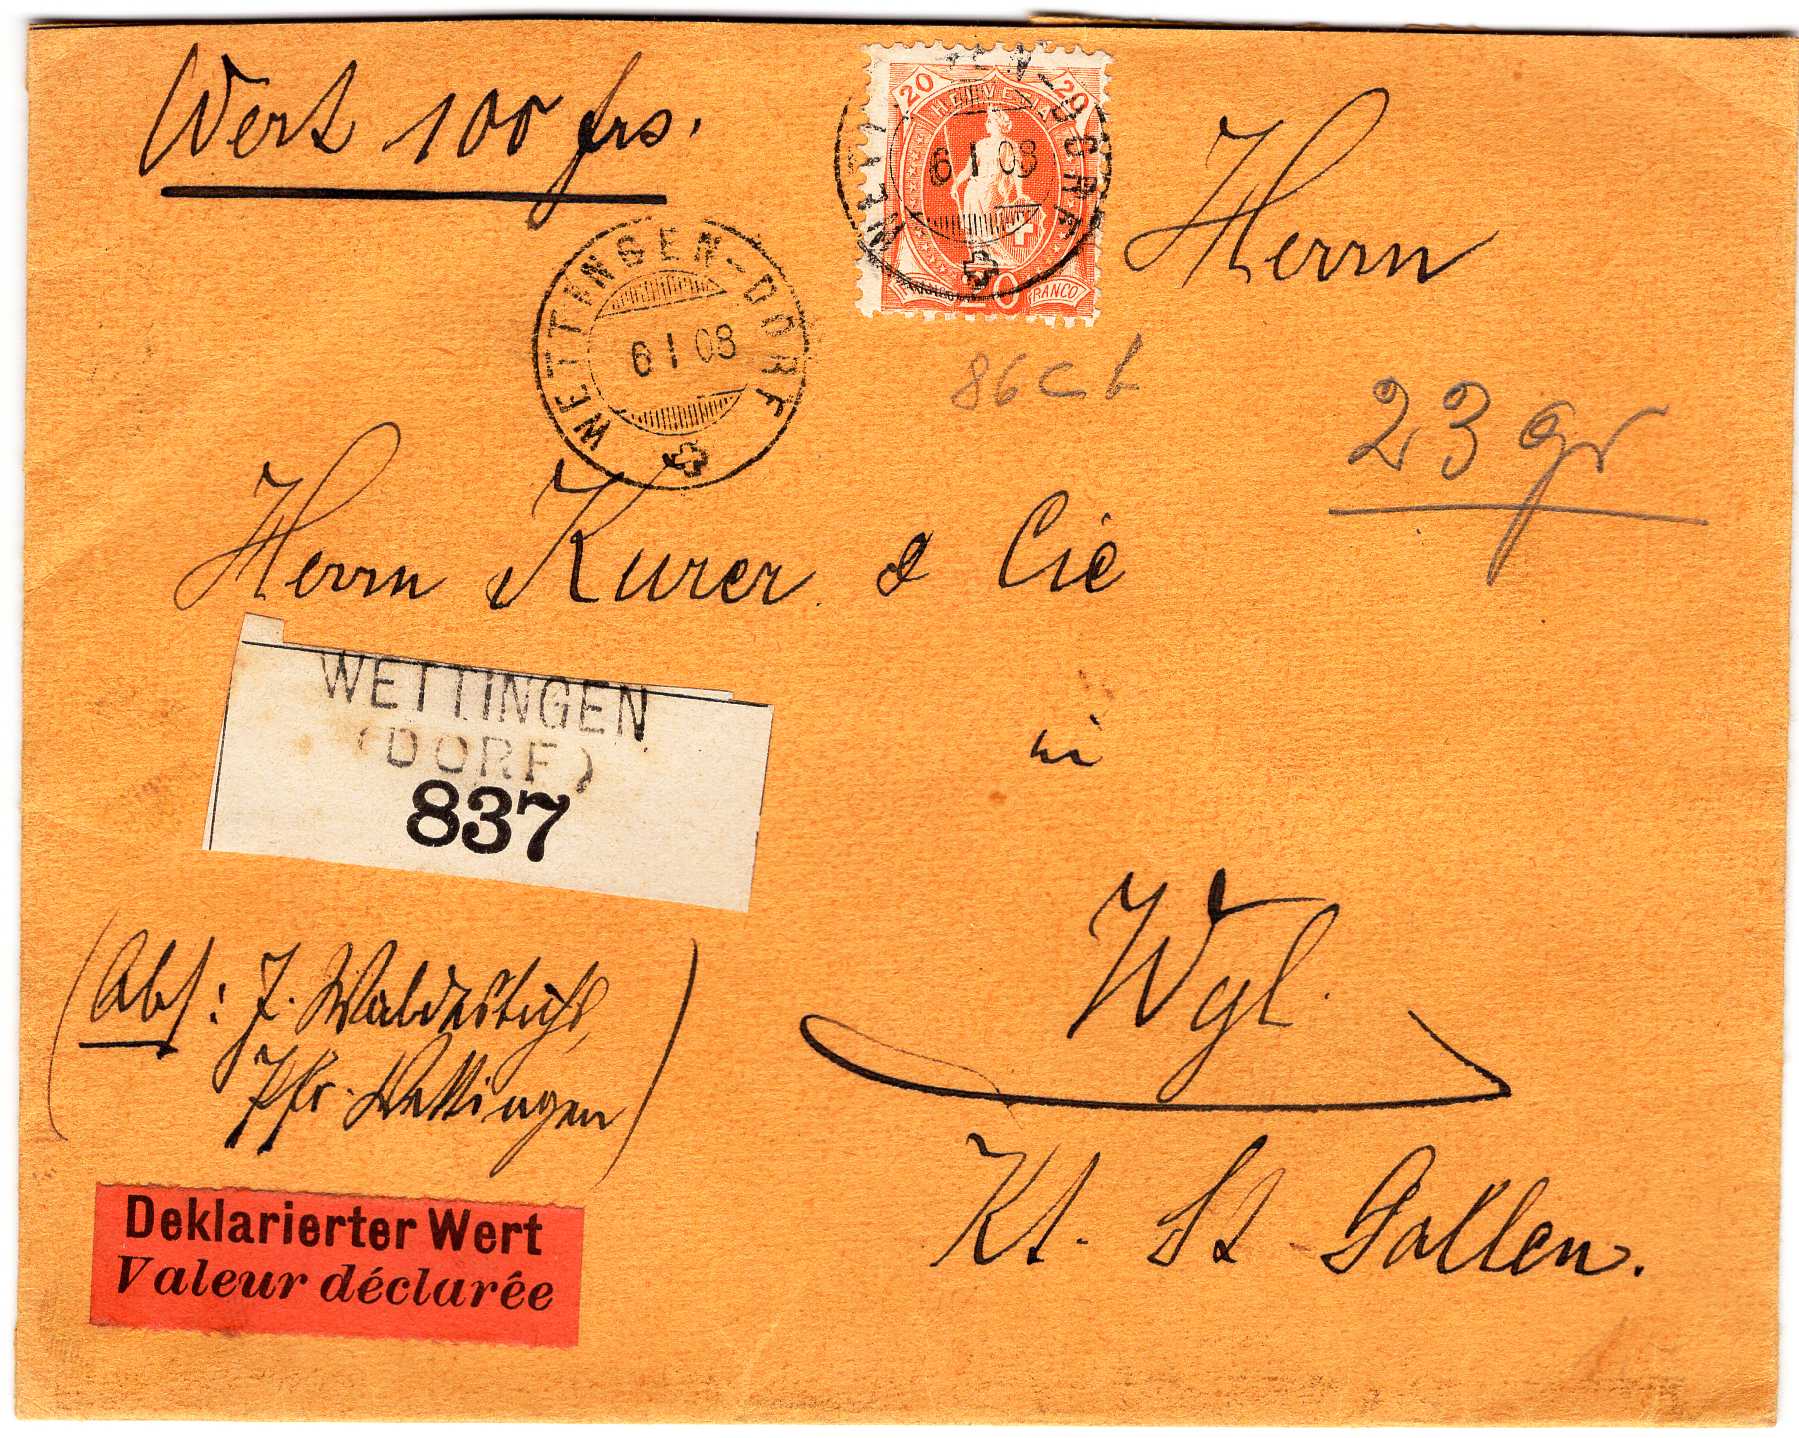 Wert 100 frs.
20 20
HELVETIA
6 I 08
FRANCO
Herrn
WETTINGEN-DORF
6 I 08
86 C b
23 gr
Herrn Kurer & Cie
in
WETTINGEN
(DORF)
837
Wyl.
(Abs: J.
Pfr. Wettingen)
Kt. St. Gallen.
Deklarierter Wert
Valeur déclarée